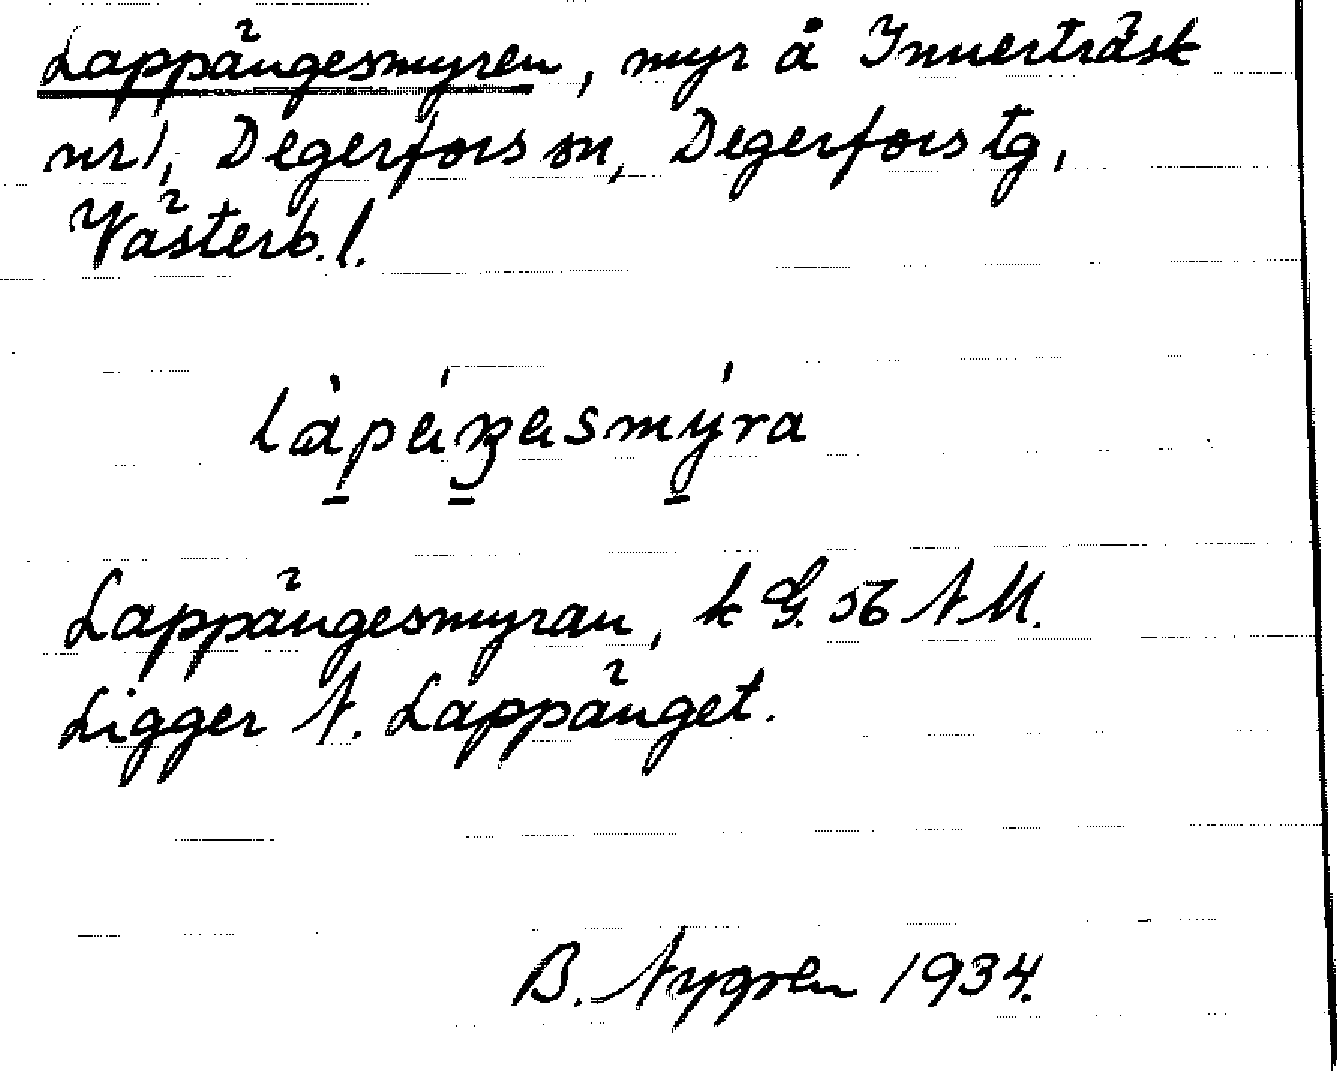 Lappängesmyren, myr å Innerträsk
nr 1, Degerfors sn, Degerfors tg,
Västerb. l.
Lappängesmyran, k G. 56 N M.
Ligger N. Lappänget.
B. Nygren 1934.